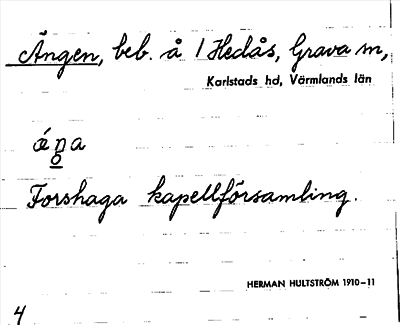 Ängen, beb. å 1 Hedås, Grava sn,
Karlstads hd, Värmlands län
Forshaga kapellförsamling.
HERMAN HULTSTRÖM 1910–11
4